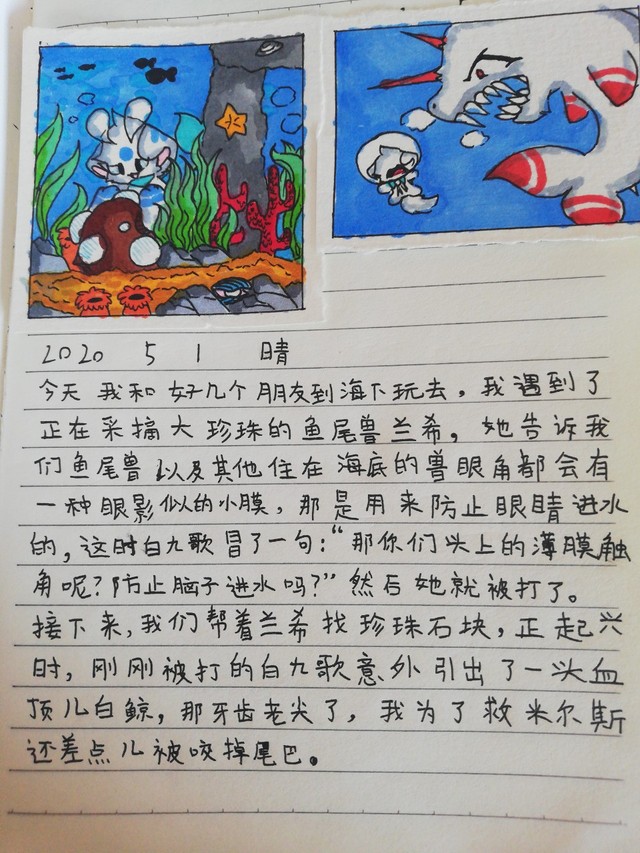 2020 5 1 晴
今天我和好几个朋友到海下玩去，我遇到了
正在采摘大珍珠的鱼尾兽兰希，她告诉我
们鱼尾兽以及其他住在海底的兽眼角都会有
一种眼影似的小膜，那是用来防止眼睛进水
的，这时白九歌冒了一句：“那你们头上的薄膜触
角呢？防止脑子进水吗？”然后她就被打了。
接下来，我们帮着兰希找珍珠石块，正起兴
时，刚刚被打的白九歌意外引出了一头血
顶儿白鲸，那牙齿老尖了，我为了救米尔斯
还差点儿被咬掉尾巴。